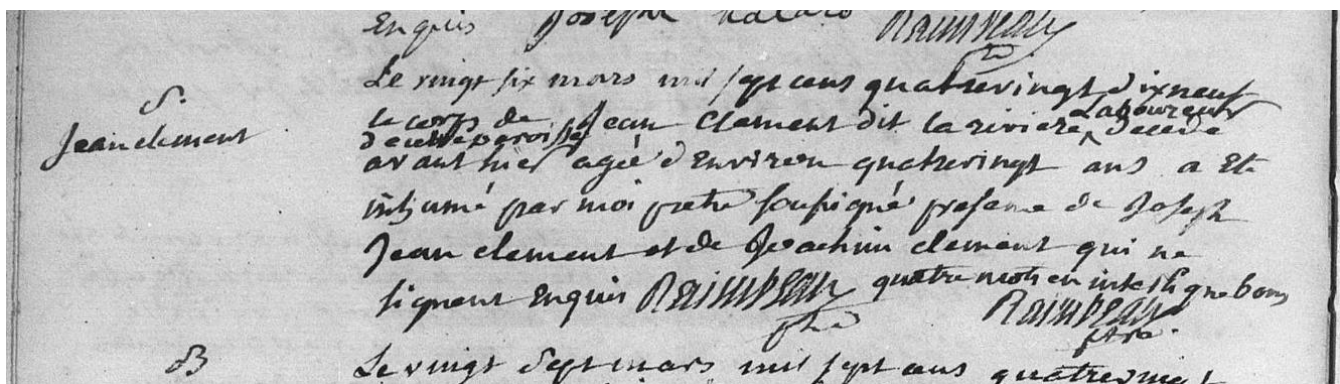 Enquis Joseph Raimbeau
ptre
S.
Jean clement
Le vingt six mars mil sept cens quatrevingt dixneuf
le corps de Jean Clement dit la riviere Laboureur decedé
de cette paroisse
avant hier agé d'environ quatrevingt ans a eté
inhumé par moi pretre soussigné presence de Joseph
Jean clement et de Joachim clement qui ne
signent Enquis Raimbeau ptre quatre mots en interligne bons
Raimbeau
ptre
B
Le vingt Sept mars mil sept cens quatrevingt